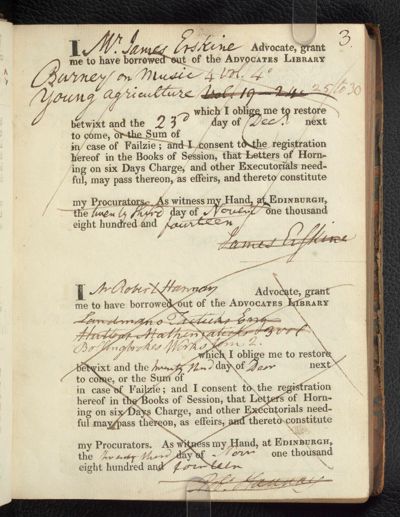 3.
I Mr. James Erskine Advocate, grant
me to have borrowed out of the ADVOCATES LIBRARY
Burney on Music 4 vol. 4o
Young agriculture Vol: 19 - 24 25 to 30
which I oblige me to restore
betwixt and the 23d day of Decr. next
to come, or the Sum of
in case of Failzie; and I consent to the registration
hereof in the Books of Session, that Letters of Horn-
ing on six Days Charge, and other Executorials need-
ful, may pass thereon, as effeirs, and thereto constitute
my Procurators. As witness my Hand, at EDINBURGH,
the twenty third day of Novemr one thousand
eight hundred and fourteen
James Erskine
I Mr Robert Hannay Advocate, grant
me to have borrowed out of the ADVOCATES LIBRARY
Landmans Tacticks Eng
Hutton Mathematicks 3 vol
Bolingbrokes Works Tom 2.
which I oblige me to restore
betwixt and the twenty third day of Decr next
to come, or the Sum of
in case of Failzie; and I consent to the registration
hereof in the Books of Session, that Letters of Horn-
ing on six Days Charge, and other Executorials need-
ful may pass thereon, as effeirs, and thereto constitute
my Procurators. As witness my Hand, at EDINBURGH,
the twenty third day of Novr one thousand
eight hundred and fourteen
Robt. Hannay